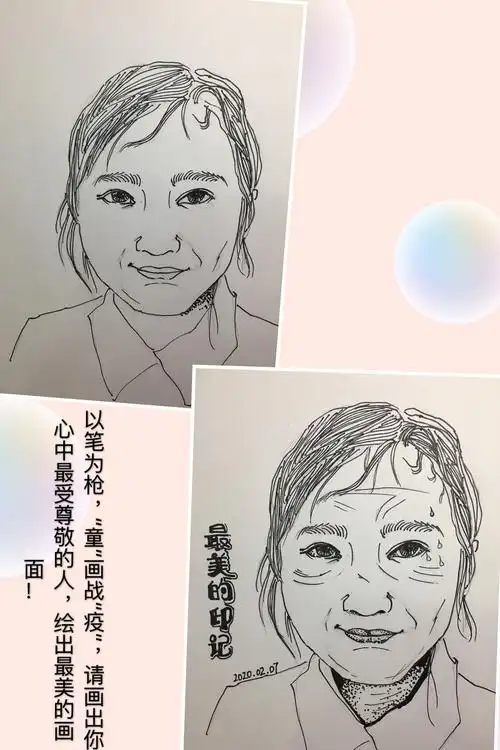 以笔为枪，“童”画战“疫”，请画出你
心中最受尊敬的人，绘出最美的画
面！
最美的印记
2020.02.07